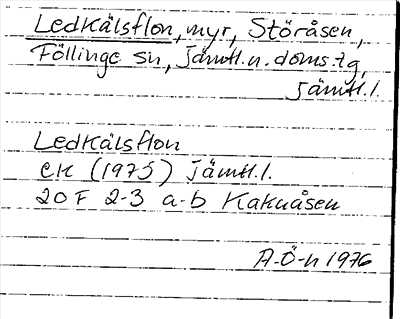 Ledkälsflon, myr, Störåsen,
Föllinge sn, Jämtl. n. doms. tg,
Jämtl. l.
Ledkälsflon
EK (1975) Jämtl. l.
20 F 2-3 a-b Kakuåsen
A. Ö-n 1976